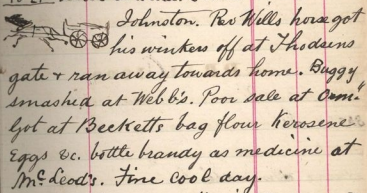 Johnston. Rev Wills horse got
his winkers off at Thodsens
gate & ran away towards home. Buggy
smashed at Webb's. Poor sale at
Got at Becketts bag flour Kerosene
Eggs &c. bottle brandy as medicine at
McLeod's. Fine cool day.